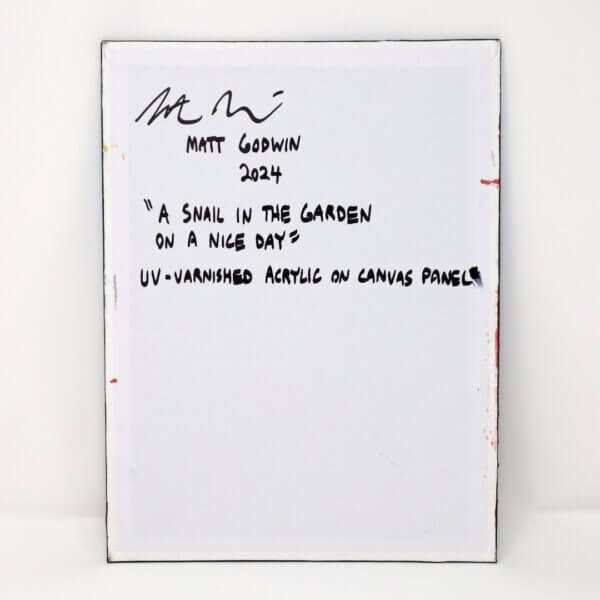 MATT GODWIN
2024
"A SNAIL IN THE GARDEN
ON A NICE DAY"
UV-VARNISHED ACRYLIC ON CANVAS PANEL